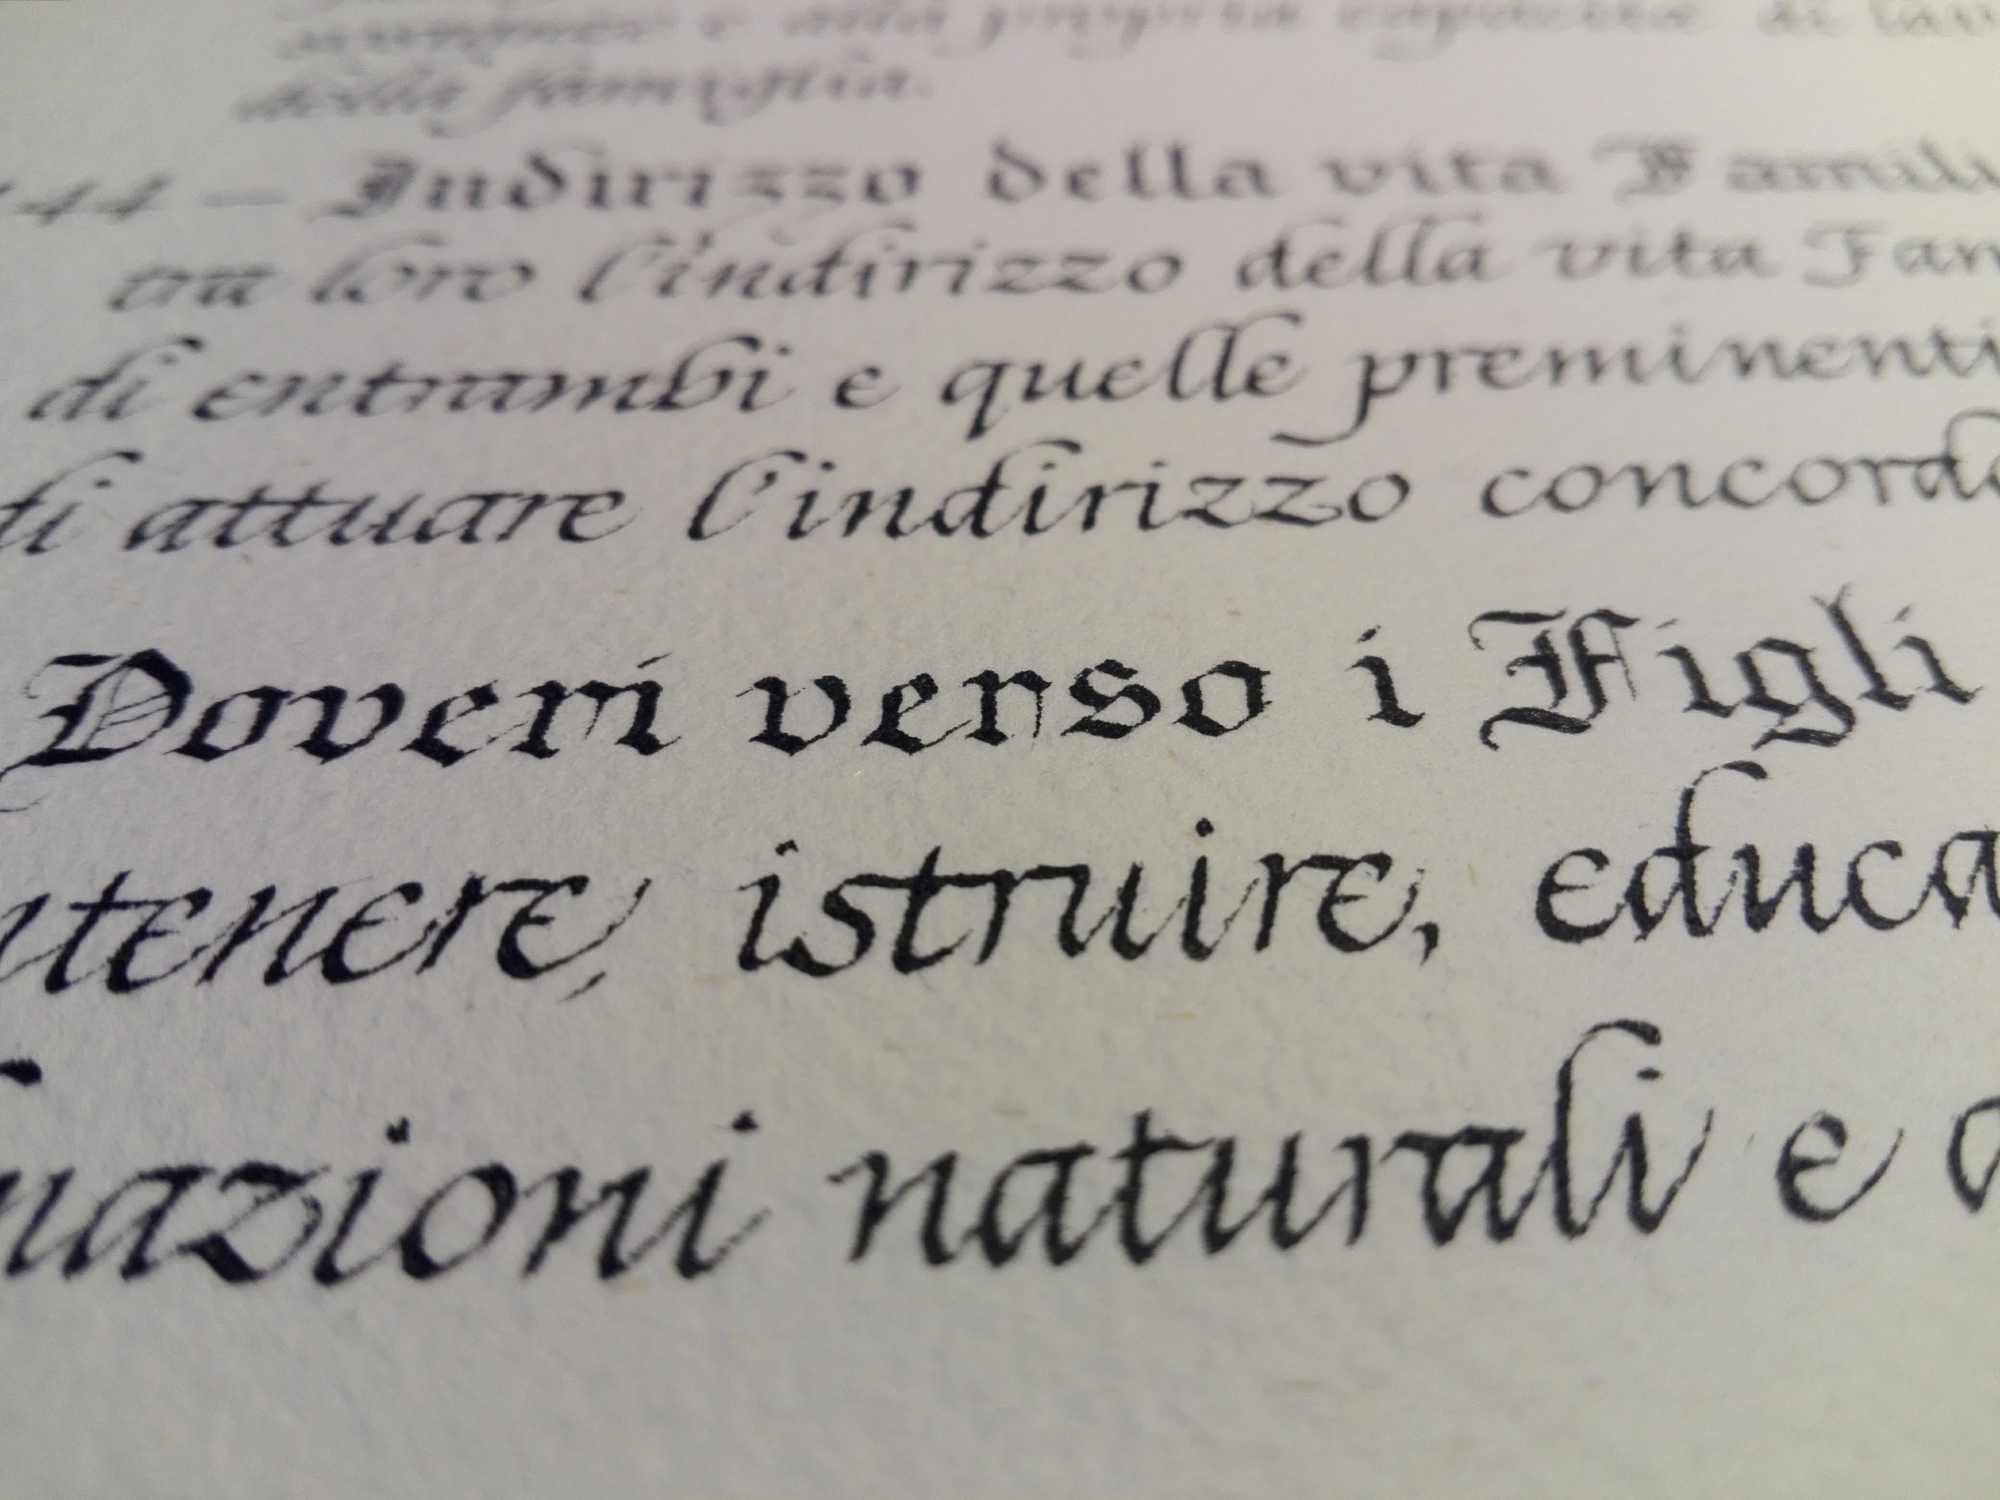 e alla propria capacità di lav
della famiglia.
144 – Indirizzo della vita Famili
tra loro l'indirizzo della vita Fam
di entrambi e quelle preminenti
di attuare l'indirizzo concorda
Doveri verso i Figli
ntenere, istruire, educa
nazioni naturali e a